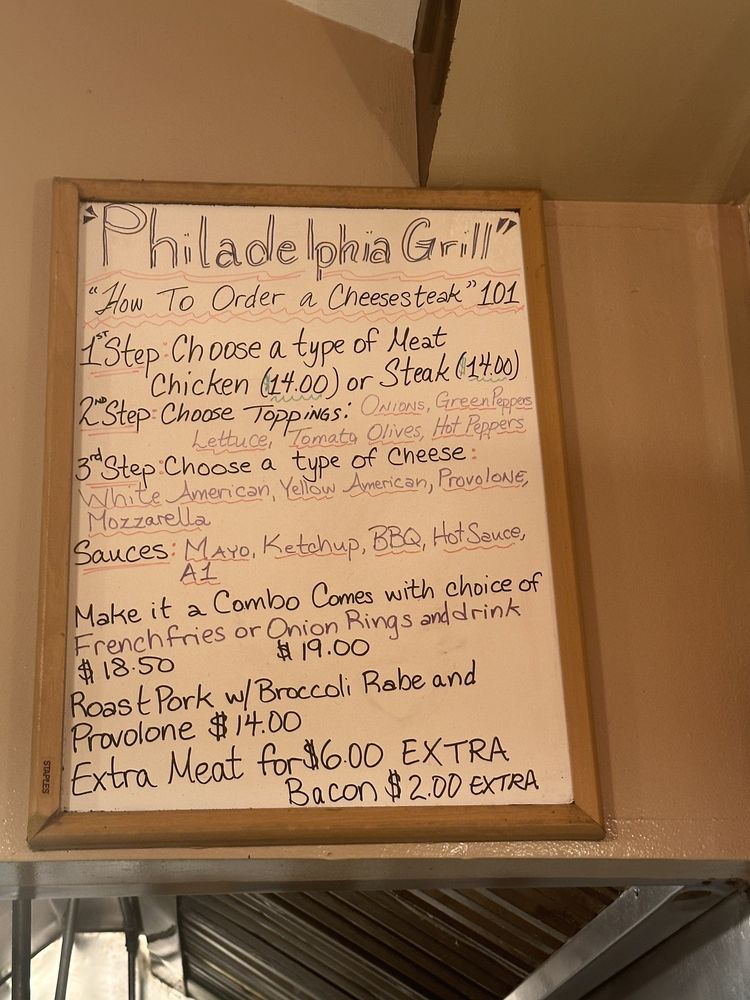 "Philadelphia Grill"
"How To Order a Cheesesteak" 101
1st Step: Choose a type of Meat
Chicken ($14.00) or Steak ($14.00)
2nd Step: Choose Toppings: Onions, Green Peppers
Lettuce, Tomato Olives, Hot Peppers
3rd Step: Choose a type of Cheese:
White American, Yellow American, Provolone,
Mozzarella
Sauces: Mayo, Ketchup, BBQ, Hot Sauce,
A1
Make it a Combo Comes with choice of
French fries or Onion Rings and drink
$18.50 $19.00
Roast Pork w/Broccoli Rabe and
Provolone $14.00
Extra Meat for $6.00 EXTRA
Bacon $2.00 EXTRA
STAPLES